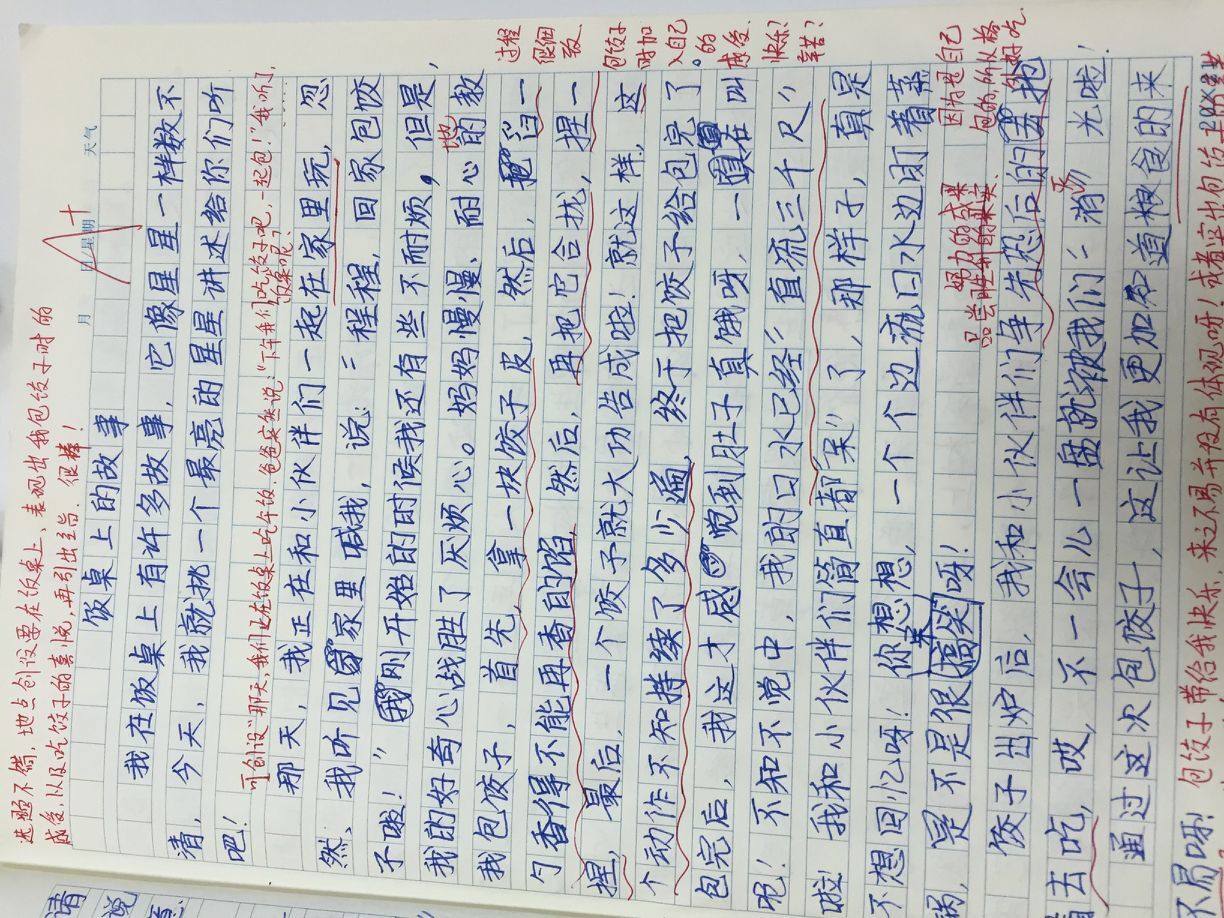 选题不错,地点创设要在饭桌上,表现出我包饺子时的
感受,以及吃饺子的喜悦,再引出主旨。很棒!
月 日 星期 天气
A+
饭桌上的故事
我在饭桌上有许多故事,它像星星一样数不
清,今天,我就挑一个最亮的星星讲述给你们听
吧!
可创设 那天,我们还在饭桌上吃午饭.爸爸突然说:"下午我们吃饺子吧,一起包!"我听了,
那天,我正在和小伙伴们一起在家里玩,忽
然,我听见家里喊我,说:"程程,回家包饺
子啦!"我刚开始的时候我还有些不耐烦。但是,
我的好奇心战胜了厌烦心。妈妈慢慢、耐心的教
地
我包饺子,首先,拿一块饺子皮,然后,舀一
勺香得不能再香的馅,然后,再把它合拢,捏一
捏,最后,一个饺子就大功告成啦!就这样,这
个动作不知持续了多少遍,终于把饺子给包完了。
包完后,我这才感觉到肚子真饿呀,一直在叫
呢!不知不觉中,我的口水已经"直流三千尺"
啦!我和小伙伴们简直都"呆"了,那样子,真是
不想回忆呀!你想想,一个个边流口水边盯着蒸
锅,是不是很搞笑呀!
饺子出炉后,我和小伙伴们争先恐后的去抢
着去吃,哎,不一会儿一盘就被我们"消灭"光啦!
通过这次包饺子,这让我更加知道粮食的来
不易呀!
过程
很细
致
包饺子
时加
入自己
的
感受.
快乐?
辛苦?
因为是自己
包的,所以格
外好吃.
努力的成果
品尝
包饺子带给我快乐,来之不易并没有体现呀!或者突出包饺子